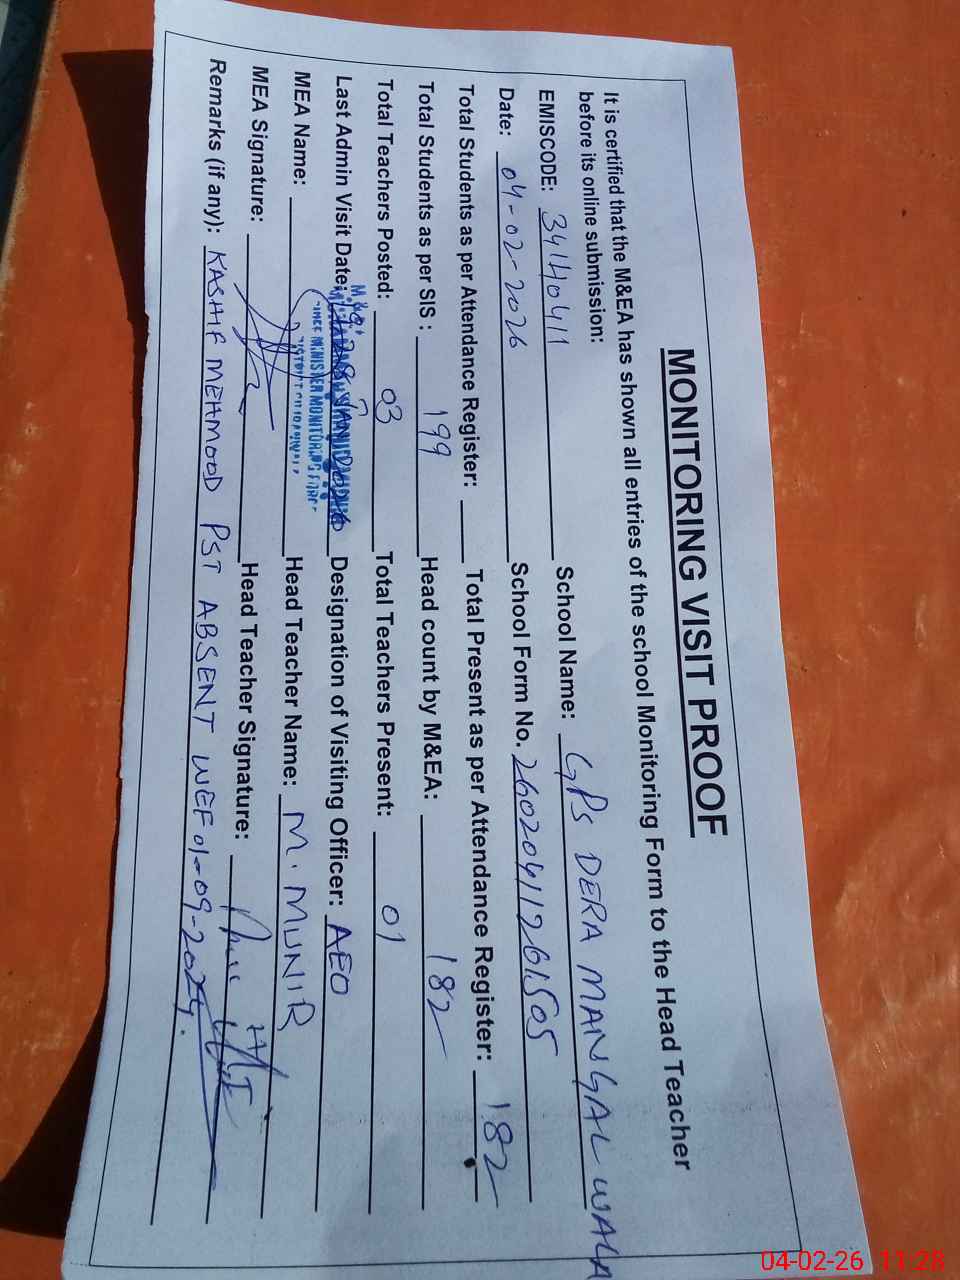 MONITORING VISIT PROOF
It is certified that the M&EA has shown all entries of the school Monitoring Form to the Head Teacher
before its online submission:
EMISCODE: 34140411 School Name: GPS DERA MANGAL WALA
Date: 04-02-2026 School Form No. 2602041261505
Total Students as per Attendance Register: Total Present as per Attendance Register: 182
Total Students as per SIS : 199 Head count by M&EA: 182
Total Teachers Posted: 03 Total Teachers Present: 01
Last Admin Visit Date: Designation of Visiting Officer: AEO
MEA Name: MINISTER MONITORING FORCE Head Teacher Name: M. MUNIR
MEA Signature: Head Teacher Signature:
Remarks (if any): KASHIF MEHMOOD PST ABSENT WEF 01-09-2024.
04-02-26 11:28